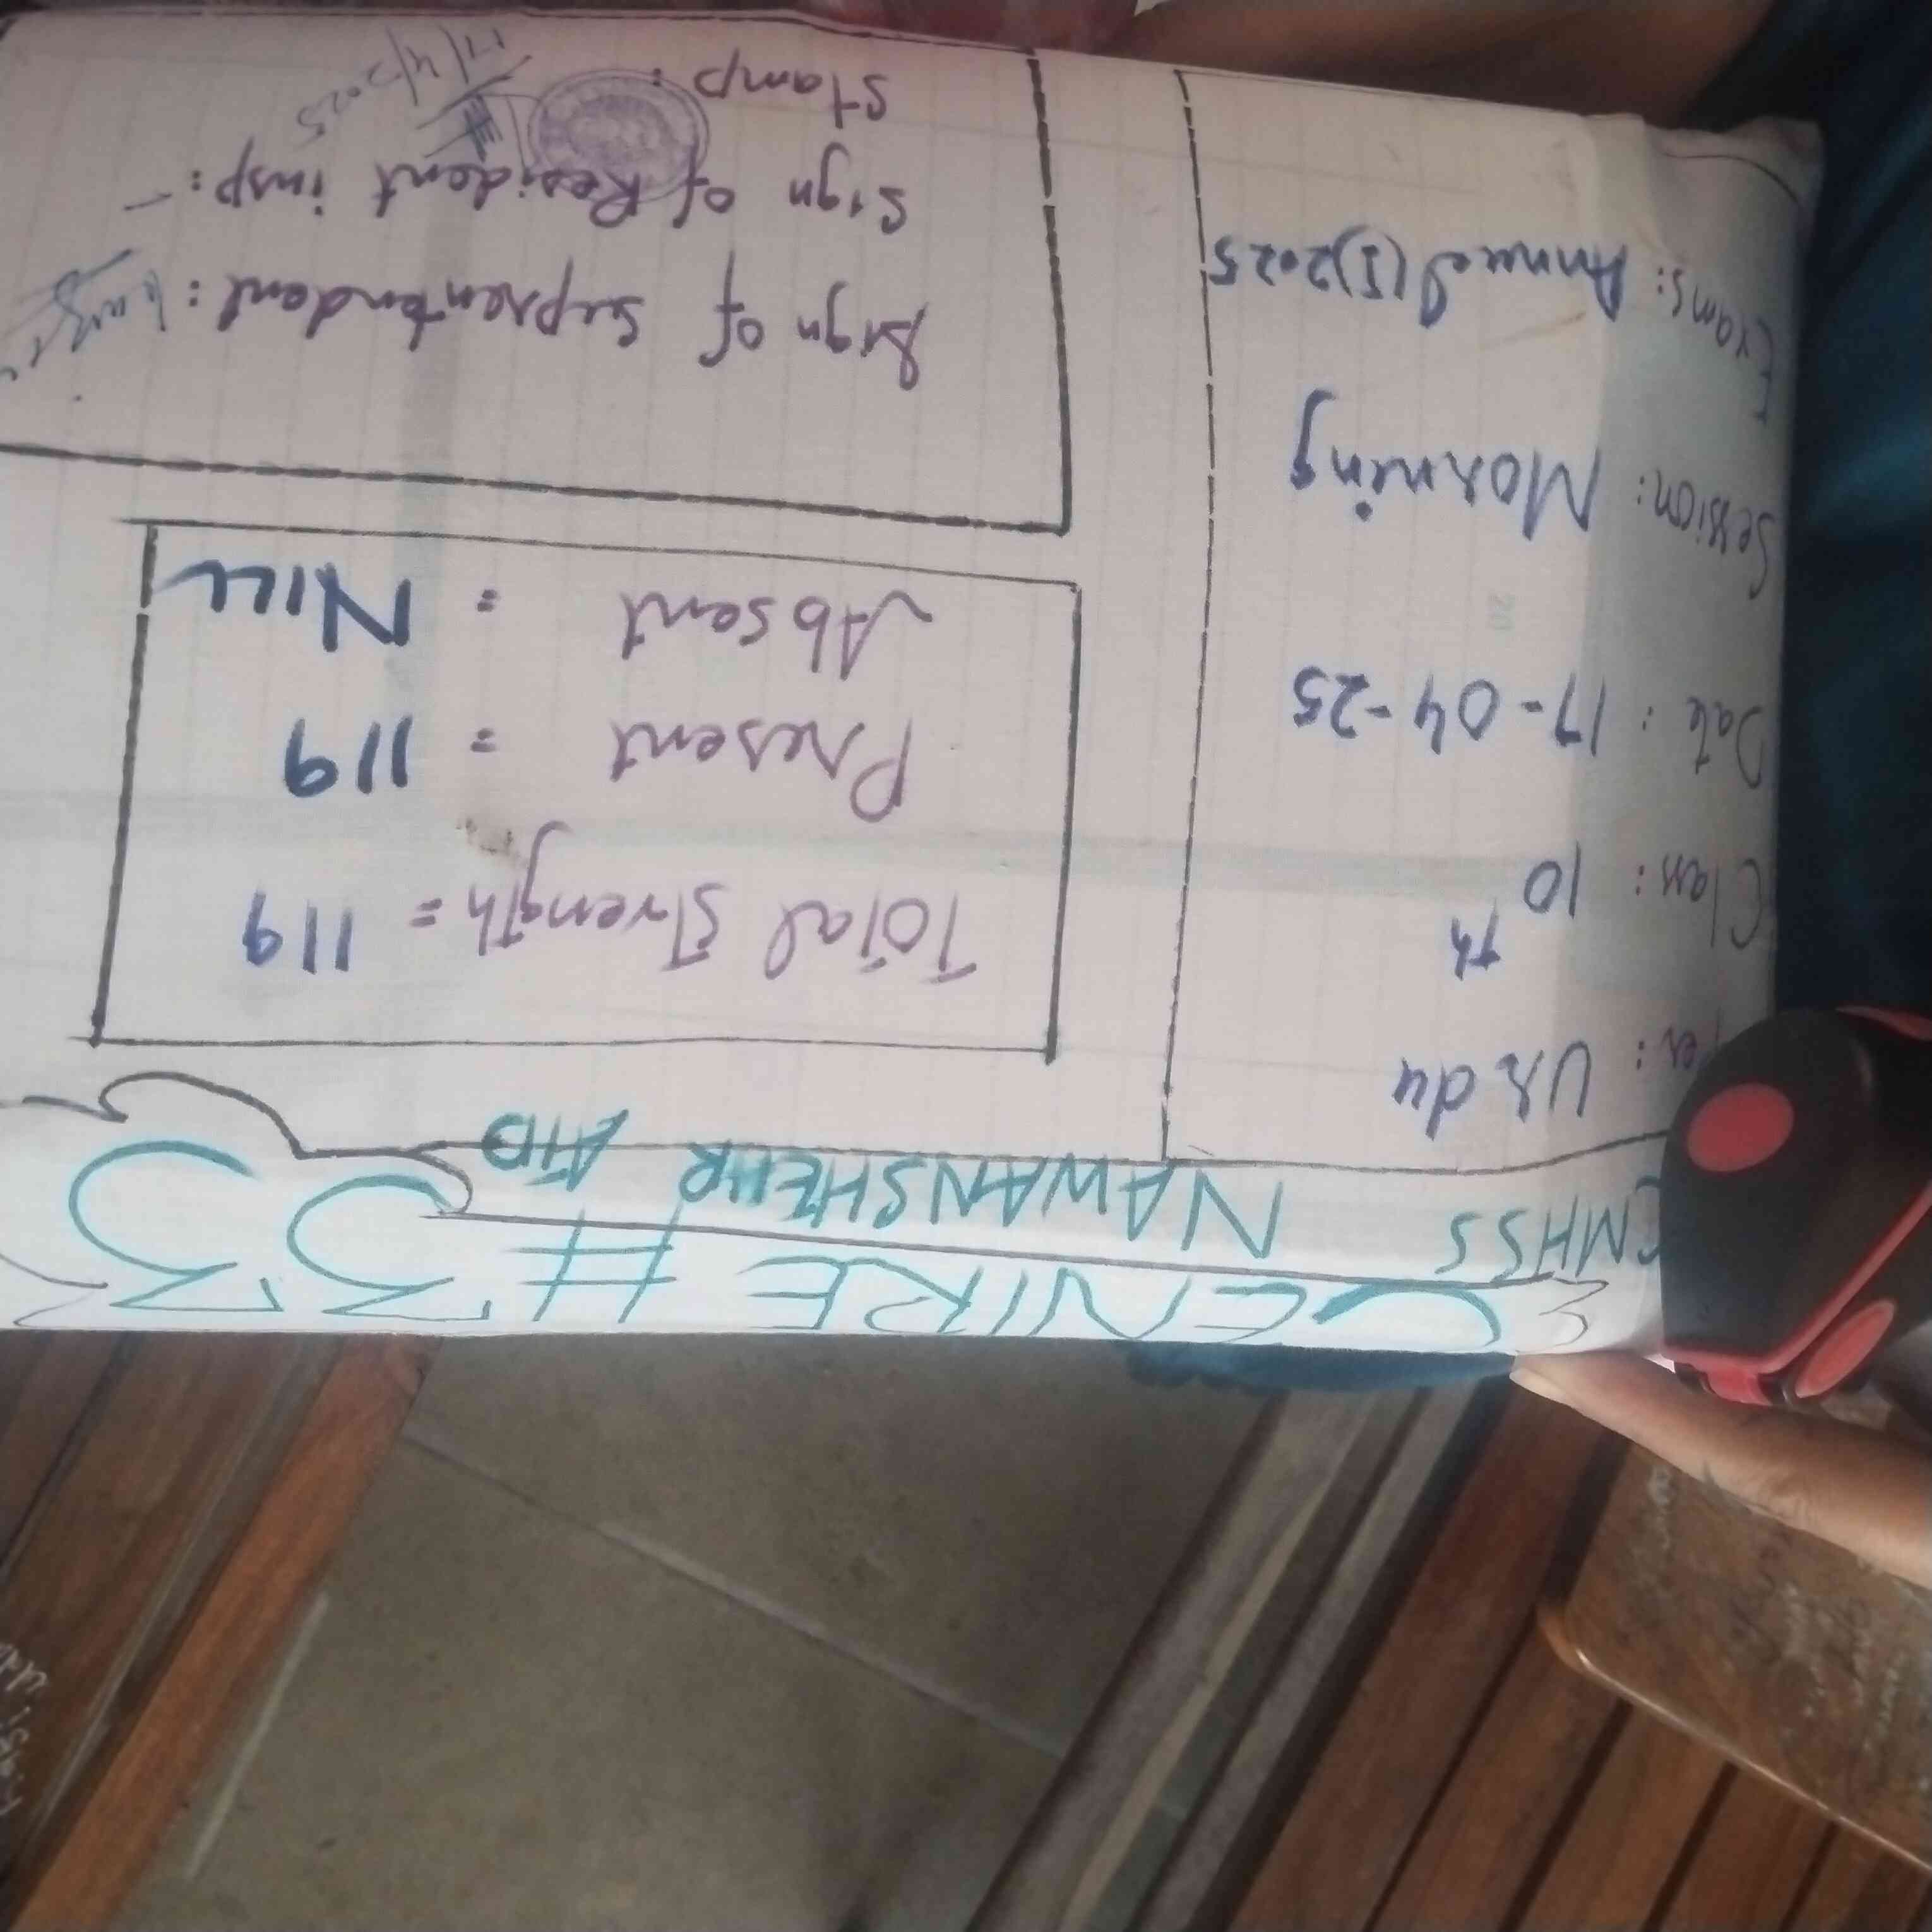 CENTRE # 33
CMHSS NAWANSHEHR ATD
Urdu
Class: 10th
Date: 17-04-25
Session: Morning
Exams: Annual (I) 2025
Total Strength = 119
Present = 119
Absent = NILL
Sign of Suprentendant:
Sign of Resident insp:
Stamp:
17/4/2025